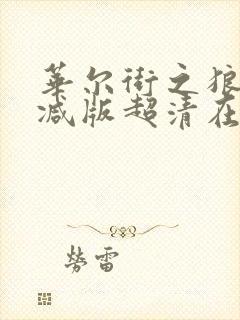 华尔街之狼
减版超清在
劳雷